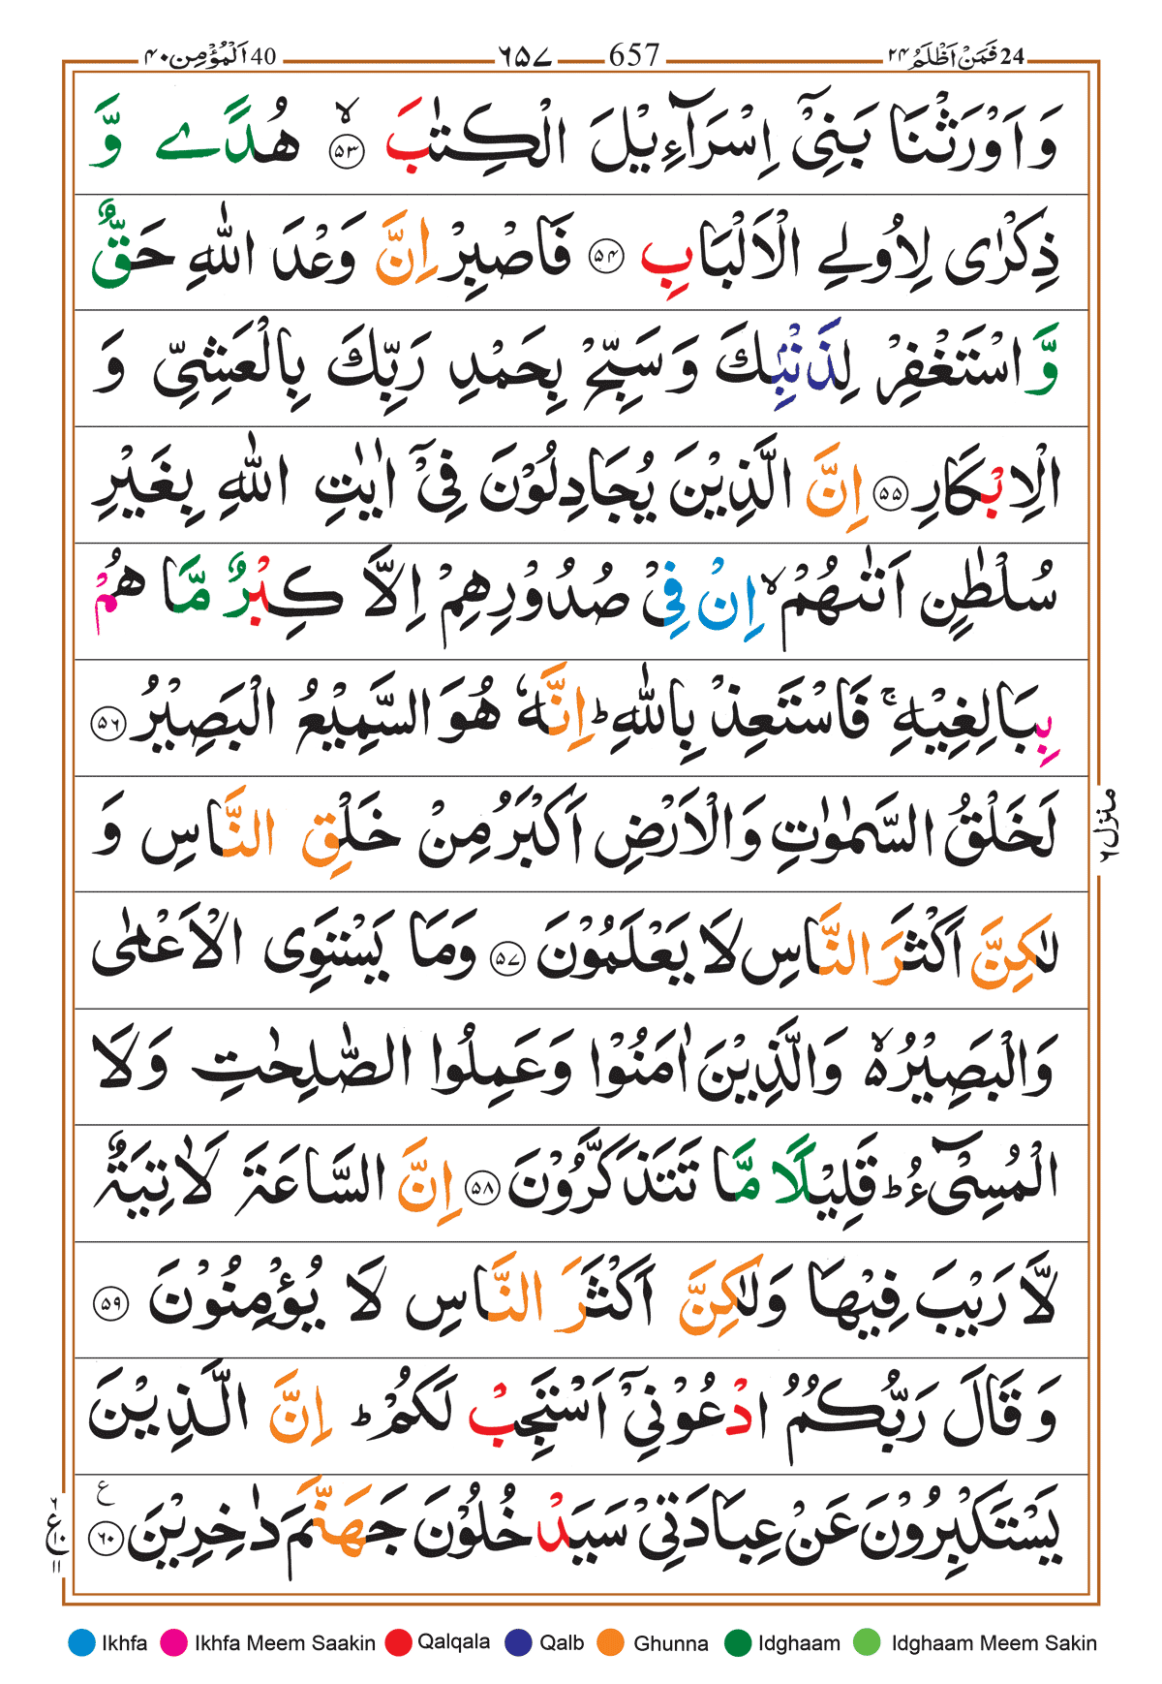 24 فَمَنْ اَظْلَمُ ۲۴ 657 ۶۵۷ 40 اَلْمُؤْمِن ۴۰
وَ اَوْرَثْنَا بَنِیْۤ اِسْرَآءِیْلَ الْكِتٰبَ ۙ﴿۵۳﴾ هُدًی وَّ
ذِكْرٰی لِاُولِی الْاَلْبَابِ ﴿۵۴﴾ فَاصْبِرْ اِنَّ وَعْدَ اللّٰهِ حَقٌّ
وَّ اسْتَغْفِرْ لِذَنْۢبِكَ وَ سَبِّحْ بِحَمْدِ رَبِّكَ بِالْعَشِیِّ وَ
الْاِبْكَارِ ﴿۵۵﴾ اِنَّ الَّذِیْنَ یُجَادِلُوْنَ فِیْۤ اٰیٰتِ اللّٰهِ بِغَیْرِ
سُلْطٰنٍ اَتٰىهُمْ ۙ اِنْ فِیْ صُدُوْرِهِمْ اِلَّا كِبْرٌ مَّا هُمْ
بِبَالِغِیْهِ ۚ فَاسْتَعِذْ بِاللّٰهِ ؕ اِنَّهٗ هُوَ السَّمِیْعُ الْبَصِیْرُ ﴿۵۶﴾
لَخَلْقُ السَّمٰوٰتِ وَالْاَرْضِ اَكْبَرُ مِنْ خَلْقِ النَّاسِ وَ
لٰكِنَّ اَكْثَرَ النَّاسِ لَا یَعْلَمُوْنَ ﴿۵۷﴾ وَمَا یَسْتَوِی الْاَعْمٰی
وَالْبَصِیْرُ ۙ۬ وَالَّذِیْنَ اٰمَنُوْا وَعَمِلُوا الصّٰلِحٰتِ وَلَا
الْمُسِیْٓءُ ؕ قَلِیْلًا مَّا تَتَذَكَّرُوْنَ ﴿۵۸﴾ اِنَّ السَّاعَةَ لَاٰتِیَةٌ
لَّا رَیْبَ فِیْهَا وَلٰكِنَّ اَكْثَرَ النَّاسِ لَا یُؤْمِنُوْنَ ﴿۵۹﴾
وَ قَالَ رَبُّكُمُ ادْعُوْنِیْۤ اَسْتَجِبْ لَكُمْ ؕ اِنَّ الَّذِیْنَ
یَسْتَكْبِرُوْنَ عَنْ عِبَادَتِیْ سَیَدْخُلُوْنَ جَهَنَّمَ دٰخِرِیْنَ ﴿۶۰﴾ ع
منزل ۶
۶ ع ۱۰ ۱۱
Ikhfa Ikhfa Meem Saakin Qalqala Qalb Ghunna Idghaam Idghaam Meem Sakin